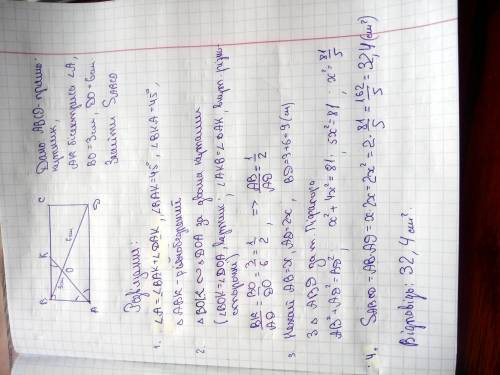 Дано ABCD - прямо-
кутник,
AK бісектриса ∠A,
BO = 3см, DO = 6см
Знайти S_ABCD
B K C
3см O 6см
A D
Розв'язання:
1. ∠A = ∠BAK + ∠DAK, ∠BAK = 45°, ∠BKA = 45°,
△ABK - рівнобедрений
2. △BOK ∾ △DOA за двома кутами
(∠BOK = ∠DOA, вертик.; ∠AKB = ∠DAK, внутр різно-
сторонні)
BK/AD = BO/DO = 3/6 = 1/2, => AB/AD = 1/2
3. Нехай AB = x, AD = 2x, BD = 3+6 = 9 (см)
З △ABD за т. Піфагора
AB² + AD² = BD², x² + 4x² = 81, 5x² = 81, x² = 81/5
4. S_ABCD = AB·AD = x·2x = 2x² = 2·81/5 = 162/5 = 32,4 (см²)
Відповідь: 32,4 см².